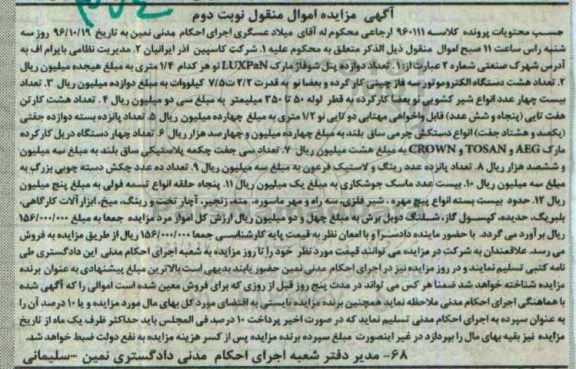 آگهی مزایده اموال منقول نوبت دوم
حسب محتویات پرونده کلاسه ۹۶۰۱۱۱ ارجاعی محکوم له آقای میلاد عسگری اجرای احکام مدنی نمین به تاریخ ۹۶/۱۰/۱۹ روز سه
شنبه راس ساعت ۱۱ صبح اموال منقول ذیل الذکر متعلق به محکوم علیه ۱. شرکت کاسپین آذر ایرانیان ۲. مدیریت نظامی بایرام اف به
آدرس شهرک صنعتی شماره ۲ عبارت از: ۱. تعداد دوازده پنل شوفاژ مارک LUXPAN نو هر کدام ۱/۴ متری به مبلغ هیجده میلیون ریال
۲. تعداد هشت دستگاه الکتروموتور سه فاز چینی کار کرده و بعضا نو به قدرت ۲/۲ تا ۷/۵ کیلووات به مبلغ دوازده میلیون ریال ۳. تعداد
بیست چهار عدد انواع شیر کشویی نو بعضا کارکرده به قطر لوله ۵۰ تا ۲۵۰ میلیمتر به مبلغ سی دو میلیون ریال ۴. تعداد هشت کارتن
هفت تایی (پنجاه و شش عدد) قابل واخواهی مهتابی دو تایی نو ۱/۲ متری به مبلغ چهارده میلیون ریال ۵. تعداد پانزده بسته دوازده جفتی
(یکصد و هشتاد جفت) انواع دستکش چرمی ساق بلند به مبلغ چهارده میلیون و چهارصد هزار ریال ۶. تعداد چهار دستگاه دریل کارکرده
مارک AEG و TOSAN و CROWN به مبلغ هشت میلیون ریال ۷. تعداد سی جفت چکمه پلاستیکی ساق بلند به مبلغ سه میلیون
و ششصد هزار ریال ۸. تعداد پانزده عدد رینگ و لاستیک فرغون به مبلغ سه میلیون ریال ۹. تعداد ده عدد چکش دسته چوبی بزرگ به
مبلغ سه میلیون ریال ۱۰. بیست عدد ماسک جوشکاری به مبلغ یک میلیون ریال ۱۱. پنجاه حلقه انواع تسمه فولی به مبلغ پنج میلیون
ریال ۱۲. حدود بیست بسته انواع پیچ مهره، شیر فلزی، سه راه و مهر ماسوره، مته، زنجیر، آچار تخت و رینگ، میخ، ابزار آلات کارگاهی،
بلبرینگ، حدیده، کپسول گاز، شیلنگ دوبل برش به مبلغ چهل و دو میلیون ریال ارزش کل اموال مورد مزایده جمعا به مبلغ ۱۵۶/۰۰۰/۰۰۰
ریال بر آورد می گردد. با حضور نماینده دادسرا و با امعان نظر به قیمت پایه کارشناسی جمعا ۱۵۶/۰۰۰/۰۰۰ ریال از طریق مزایده به فروش
می رسد. علاقمندان به شرکت در مزایده می توانند قیمت مورد نظر خود را تا روز مزایده به شعبه اجرای احکام مدنی این دادگستری طی
نامه کتبی تسلیم نمایند و در روز مزایده نیز در اجرای احکام مدنی نمین حضور یابند بدیهی است بالاترین مبلغ پیشنهادی به عنوان برنده
مزایده شناخته خواهد شد ضمنا هر کس می تواند در مدت پنج روز قبل از روزی که برای فروش معین شده است اموالی را که آگهی شده
با هماهنگی اجرای احکام مدنی ملاحظه نماید همچنین برنده مزایده بایستی به اقتضای مورد کل بهای مال مورد مزایده و یا ۱۰ درصد آن را
به عنوان سپرده به اجرای احکام مدنی تسلیم نماید که در صورت اخیر پرداخت ۱۰ درصد فی المجلس باید حداکثر ظرف یک ماه از تاریخ
مزایده نیز بقیه بهای مال را بپردازد در غیر اینصورت مبلغ سپرده برنده مزایده پس از کسر هزینه مزایده به نفع دولت ضبط خواهد شد.
۶۸- مدیر دفتر شعبه اجرای احکام مدنی دادگستری نمین -سلیمانی